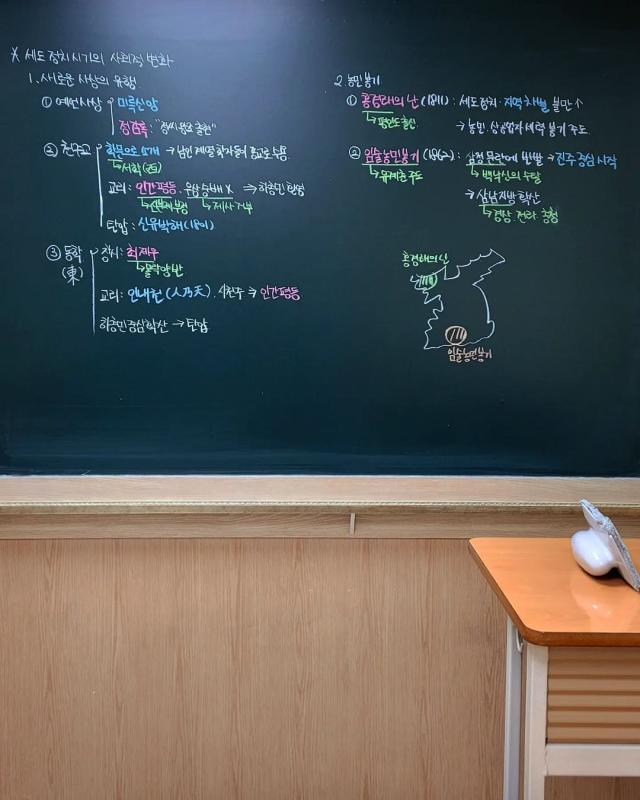 * 세도 정치 시기의 사회적 변화
1. 새로운 사상의 유행
① 예언사상
미륵신앙
정감록 : "정씨 왕조 출현"
② 천주교
학문으로 소개 → 남인 계열 학자들이 종교로 수용.
↳ 서학(西)
교리 : 인간 평등. 우상숭배 X ⇒ 하층민 환영
↳ 신분제 부정 ↳ 제사 거부
탄압 : 신유박해 (1801)
③ 동학
(東)
창시 : 최제우
↳ 몰락 양반
교리 : 인내천 (人乃天). 시천주 ⇒ 인간평등
하층민 중심 확산 → 탄압
2. 농민 봉기
① 홍경래의 난 (1811) : 세도정치. 지역 차별 불만 ↑
↳ 평안도 출신
→ 농민. 상공업자 세력 봉기 주도.
② 임술농민봉기 (1862) : 삼정 문란에 반발 → 진주 중심 시작
↳ 유계춘 주도 ↳ 백낙신의 수탈
⇒ 삼남지방 확산
↳ 경상. 전라. 충청
홍경래의 난
임술농민봉기